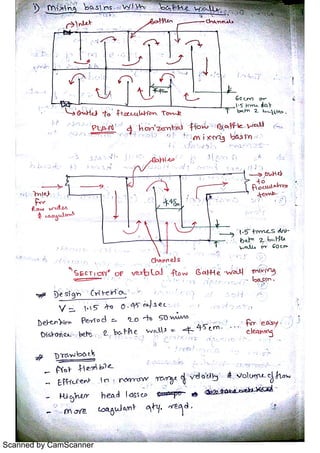 1) Mixing basins with baffle walls.
Inlet
Baffles
Channels
60cm or
1.5 times dist
betn 2 baffles.
Outlet to flocculation Tank
PLAN of horizontal flow Baffle wall
mixing basin
Baffles
Outlet
to
flocculation
tank
Inlet
for
Raw water
& coagulant
≮45
1.5 times dis-
betn 2 baffle
walls or 60cm
Channels
"SECTION" OF vertical flow Baffle wall mixing
basin.
Design Criteria
V = 1.15 to 0.45 m/sec
Detention Period = 20 to 50 mins
Distance betn 2 baffle walls = ≮ 45cm. ... for easy
cleaning
Drawback
- Not flexible
- Efficient in narrow range of velocity & volume of flow
- Higher head losses
- more coagulant qty. reqd.
Scanned by CamScanner